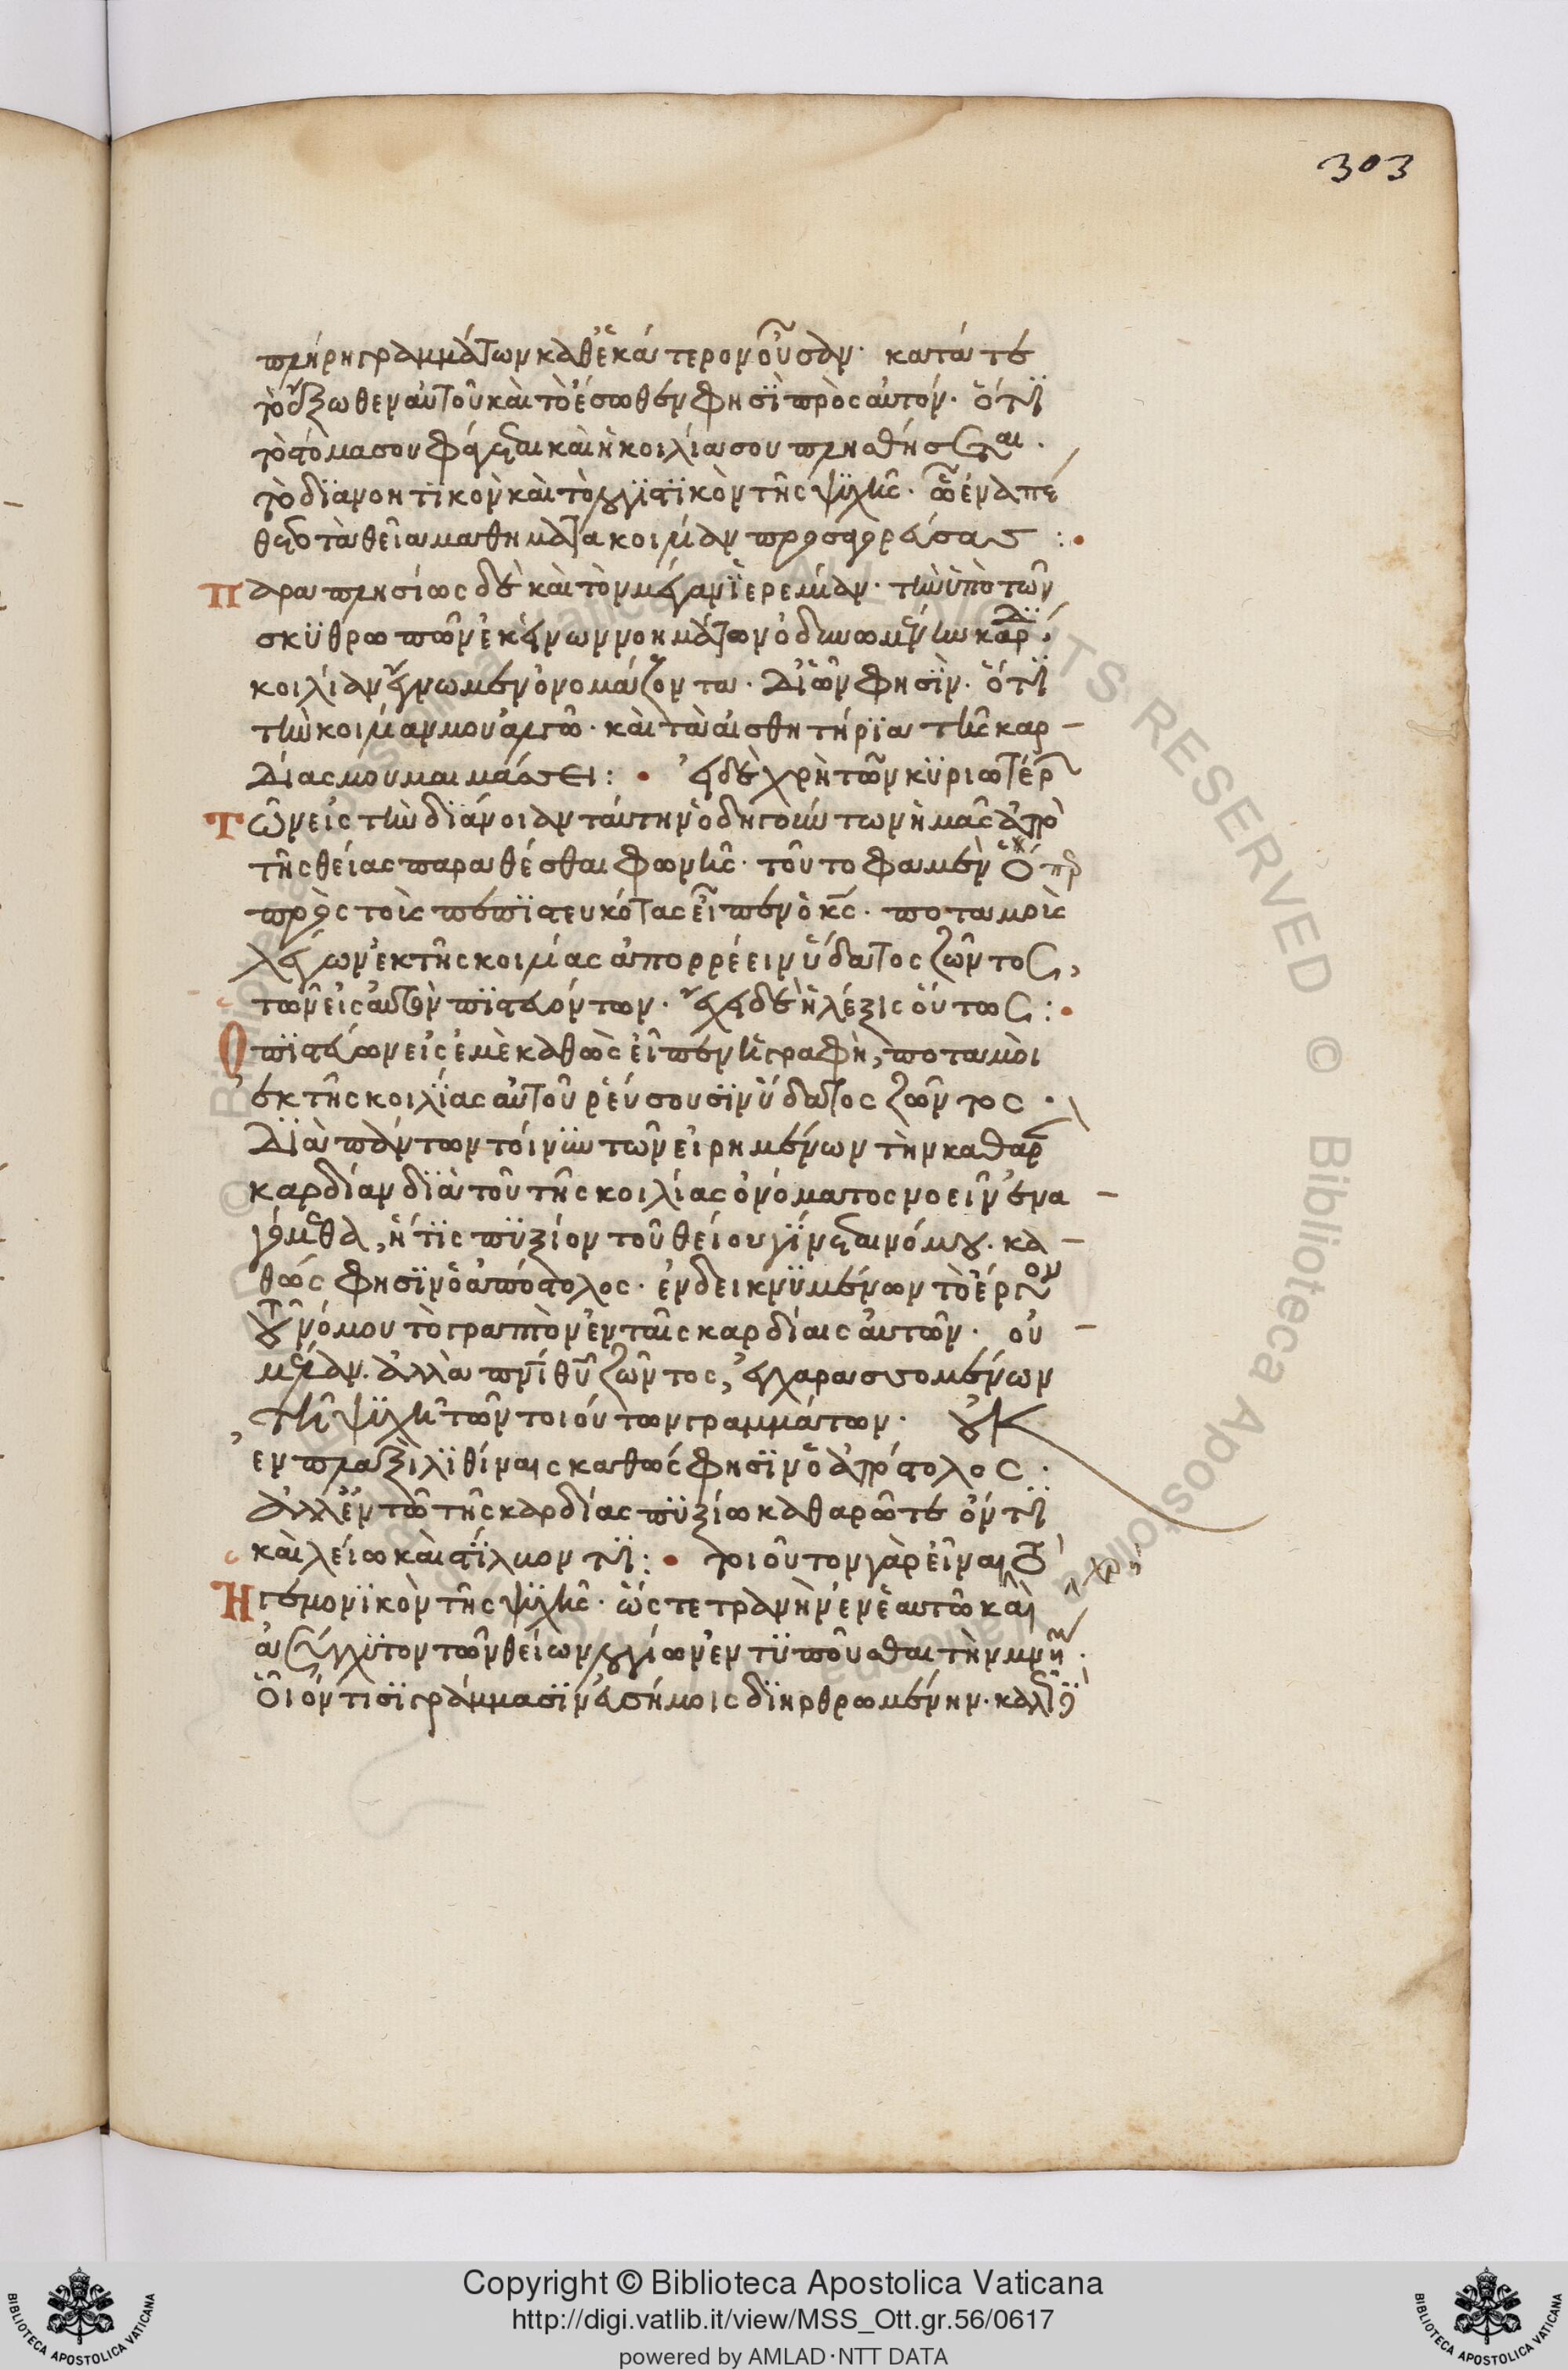 303
πλήρη γραμμάτων καθ' ἑκάτερον οὖσαν· κατά τε
τὸ ἔξωθεν αὐτοῦ καὶ τὸ ἔσωθεν φησὶ πρὸς αὐτόν· ὅτι
τὸ στόμα σου φάγεται καὶ ἡ κοιλία σου πλησθήσεται·
τὸ διανοητικὸν καὶ τὸ λογιστικὸν τῆς ψυχῆς·
τὰ θεῖα μαθήματα κοιλίαν προσαγορεύσας :
Παραπλησίως δὲ καὶ τὸν μέγαν ἱερεμίαν· τὴν ὑπὸ τῶν
σκυθρωπῶν ἐκείνων νοημάτων ὀδυνωμένην καρδί
κοιλίαν ἔγνωμεν ὀνομάζοντα· δι' ὧν φησίν· ὅτι
τὴν κοιλίαν μου ἀλγῶ· καὶ τὰ αἰσθητήρια τῆς καρ
δίας μου μαιμάσσει : εἰ δὲ χρὴ τῶν κυριωτέρ
Τῶν εἰς τὴν διάνοιαν ταύτην ὁδηγούντων ἡμᾶς ἀπὸ
τῆς θείας παραθέσθαι φωνῆς· τοῦτο φαμὲν ὅπερ
πρὸς τοὺς πεπιστευκότας εἶπεν ὁ κς· ποταμοὺς
λέγων ἐκ τῆς κοιλίας ἀπορρέειν ὕδατος ζῶντος,
τῶν εἰς αὐτὸν πιστευόντων· ἔχει δὲ ἡ λέξις οὕτως :
Ὁ πιστεύων εἰς ἐμὲ καθὼς εἶπεν ἡ γραφή, ποταμοὶ
ἐκ τῆς κοιλίας αὐτοῦ ῥεύσουσιν ὕδατος ζῶντος ·
Διὰ πάντων τοίνυν τῶν εἰρημένων τὴν καθαρ
καρδίαν διὰ τοῦ τῆς κοιλίας ὀνόματος νοεῖν ἐνα
γόμεθα, ἥτις πυξίον τοῦ θείου γίνεται νόμου· κα
θώς φησιν ὁ ἀπόστολος· ἐνδεικνυμένων τὸ ἔργον
τοῦ νόμου τὸ γραπτὸν ἐν ταῖς καρδίαις αὐτῶν· οὐ
μέλαν. ἀλλὰ πνι θυ ζῶντος, ἐγχαρασσομένων
τῇ ψυχῇ τῶν τοιούτων γραμμάτων· οὐκ
ἐν πλαξὶ λιθίναις καθώς φησιν ὁ ἀπόστολος ·
ἀλλ' ἐν τῷ τῆς καρδίας πυξίῳ καθαρῷ τε ὄντι
καὶ λείῳ καὶ στίλβοντι : τοιοῦτον γὰρ εἶναι χρὴ τὸ
Ἡγεμονικὸν τῆς ψυχῆς· ὥστε τρανὴν ἐν ἑαυτῷ καὶ
ἀσύγχυτον τῶν θείων λογίων ἐντυποῦσθαι τὴν μνήμην·
οἷόν τισι γράμμασιν εὐσήμοις διηρθρωμένην· καλῶς
Copyright © Biblioteca Apostolica Vaticana
http://digi.vatlib.it/view/MSS_Ott.gr.56/0617
powered by AMLAD·NTT DATA